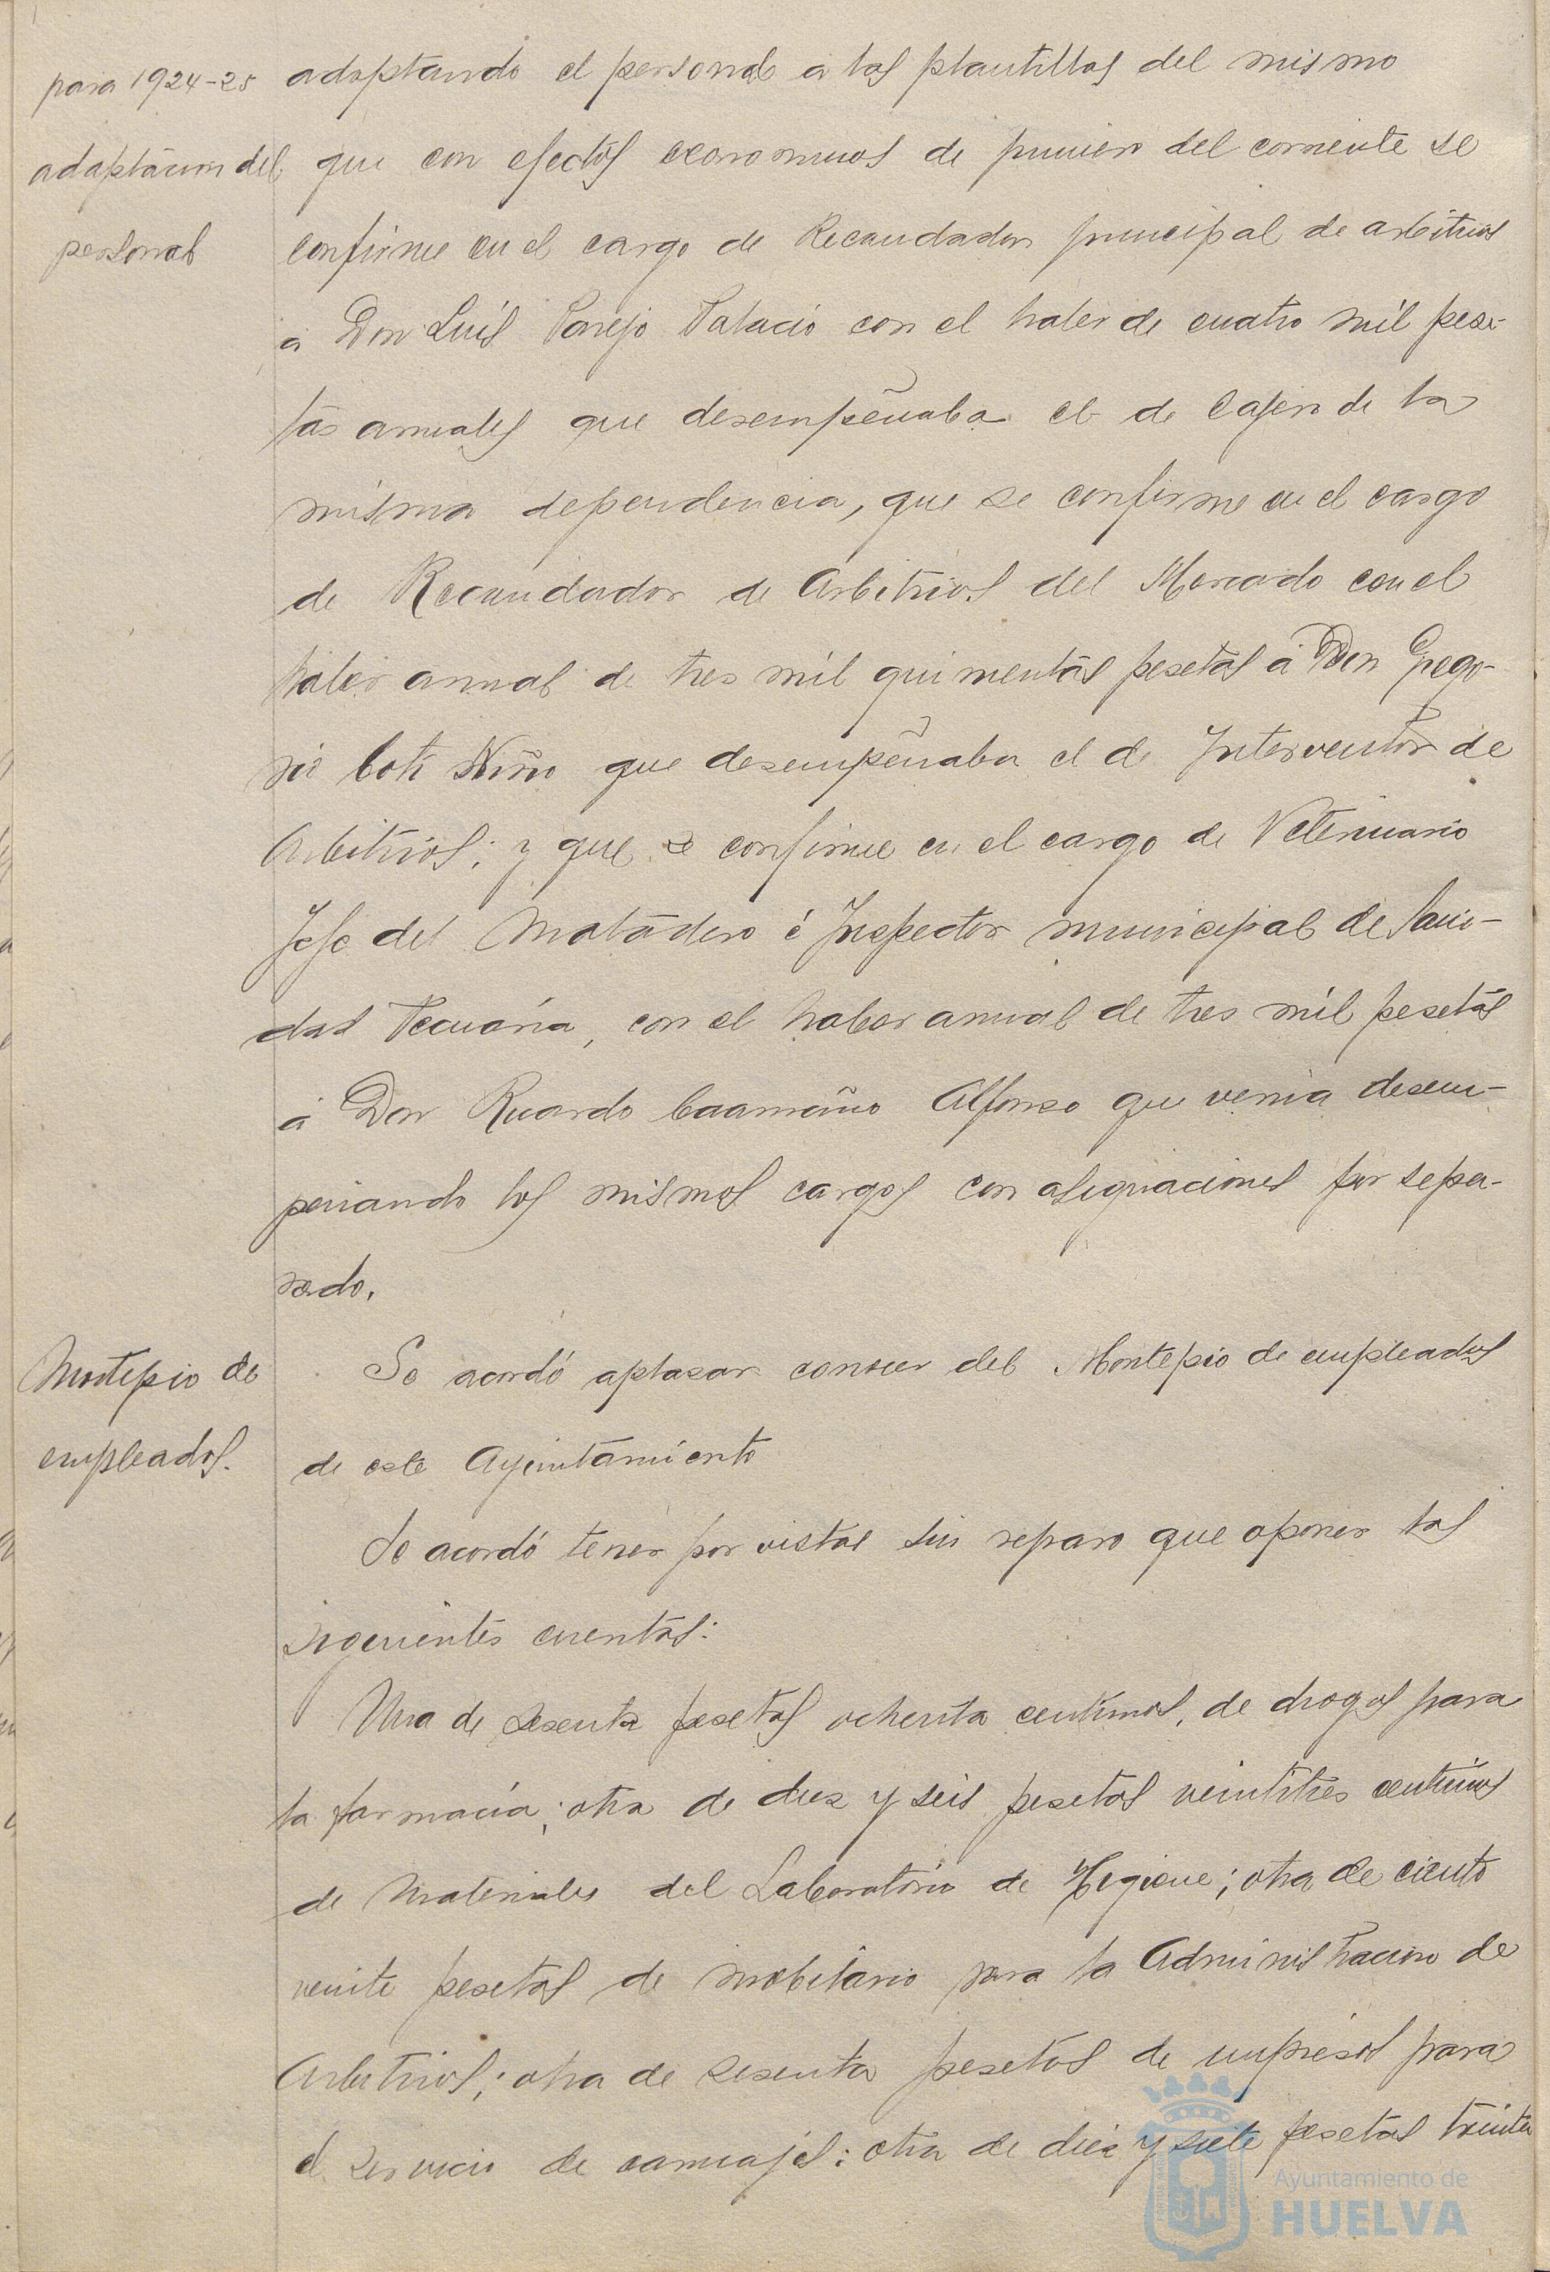 para 1924-25
adaptación del
personal
adaptando el personal a las plantillas del mismo
que con efectos económicos de primero del corriente se
confirme en el cargo de Recaudador principal de arbitrios
a Don Luís Parejo Palacio con el haber de cuatro mil pese-
tas anuales que desempeñaba el de Cajero de la
misma dependencia, que se confirme en el cargo
de Recaudador de Arbitrios del Mercado con el
haber anual de tres mil quinientas pesetas á Don Grego-
rio Niño que desempeñaba el de Interventor de
Arbitrios; y que se confirme en el cargo de Veterinario
Jefe del Matadero é Inspector municipal de Sani-
dad Pecuaria, con el haber anual de tres mil pesetas
á Don Ricardo Caamaño Alfonso que venia desem-
peñando los mismos cargos con asignaciones por sepa-
rado.
Montepio de
empleados.
Se acordó aplazar conocer del Montepio de empleados
de este Ayuntamiento
Se acordó tener por vistas sin reparo que oponer las
siguientes cuentas:
Una de sesenta pesetas ochenta centimos, de drogas para
la farmacia; otra de diez y seis pesetas veintitres centimos
de Materiales del Laboratorio de Higiene; otra de ciento
veinte pesetas de mobiliario para la Administración de
Arbitrios; otra de sesenta pesetas de impresos para
el servicio de carruajes; otra de diez y siete pesetas treinta
Ayuntamiento de
HUELVA